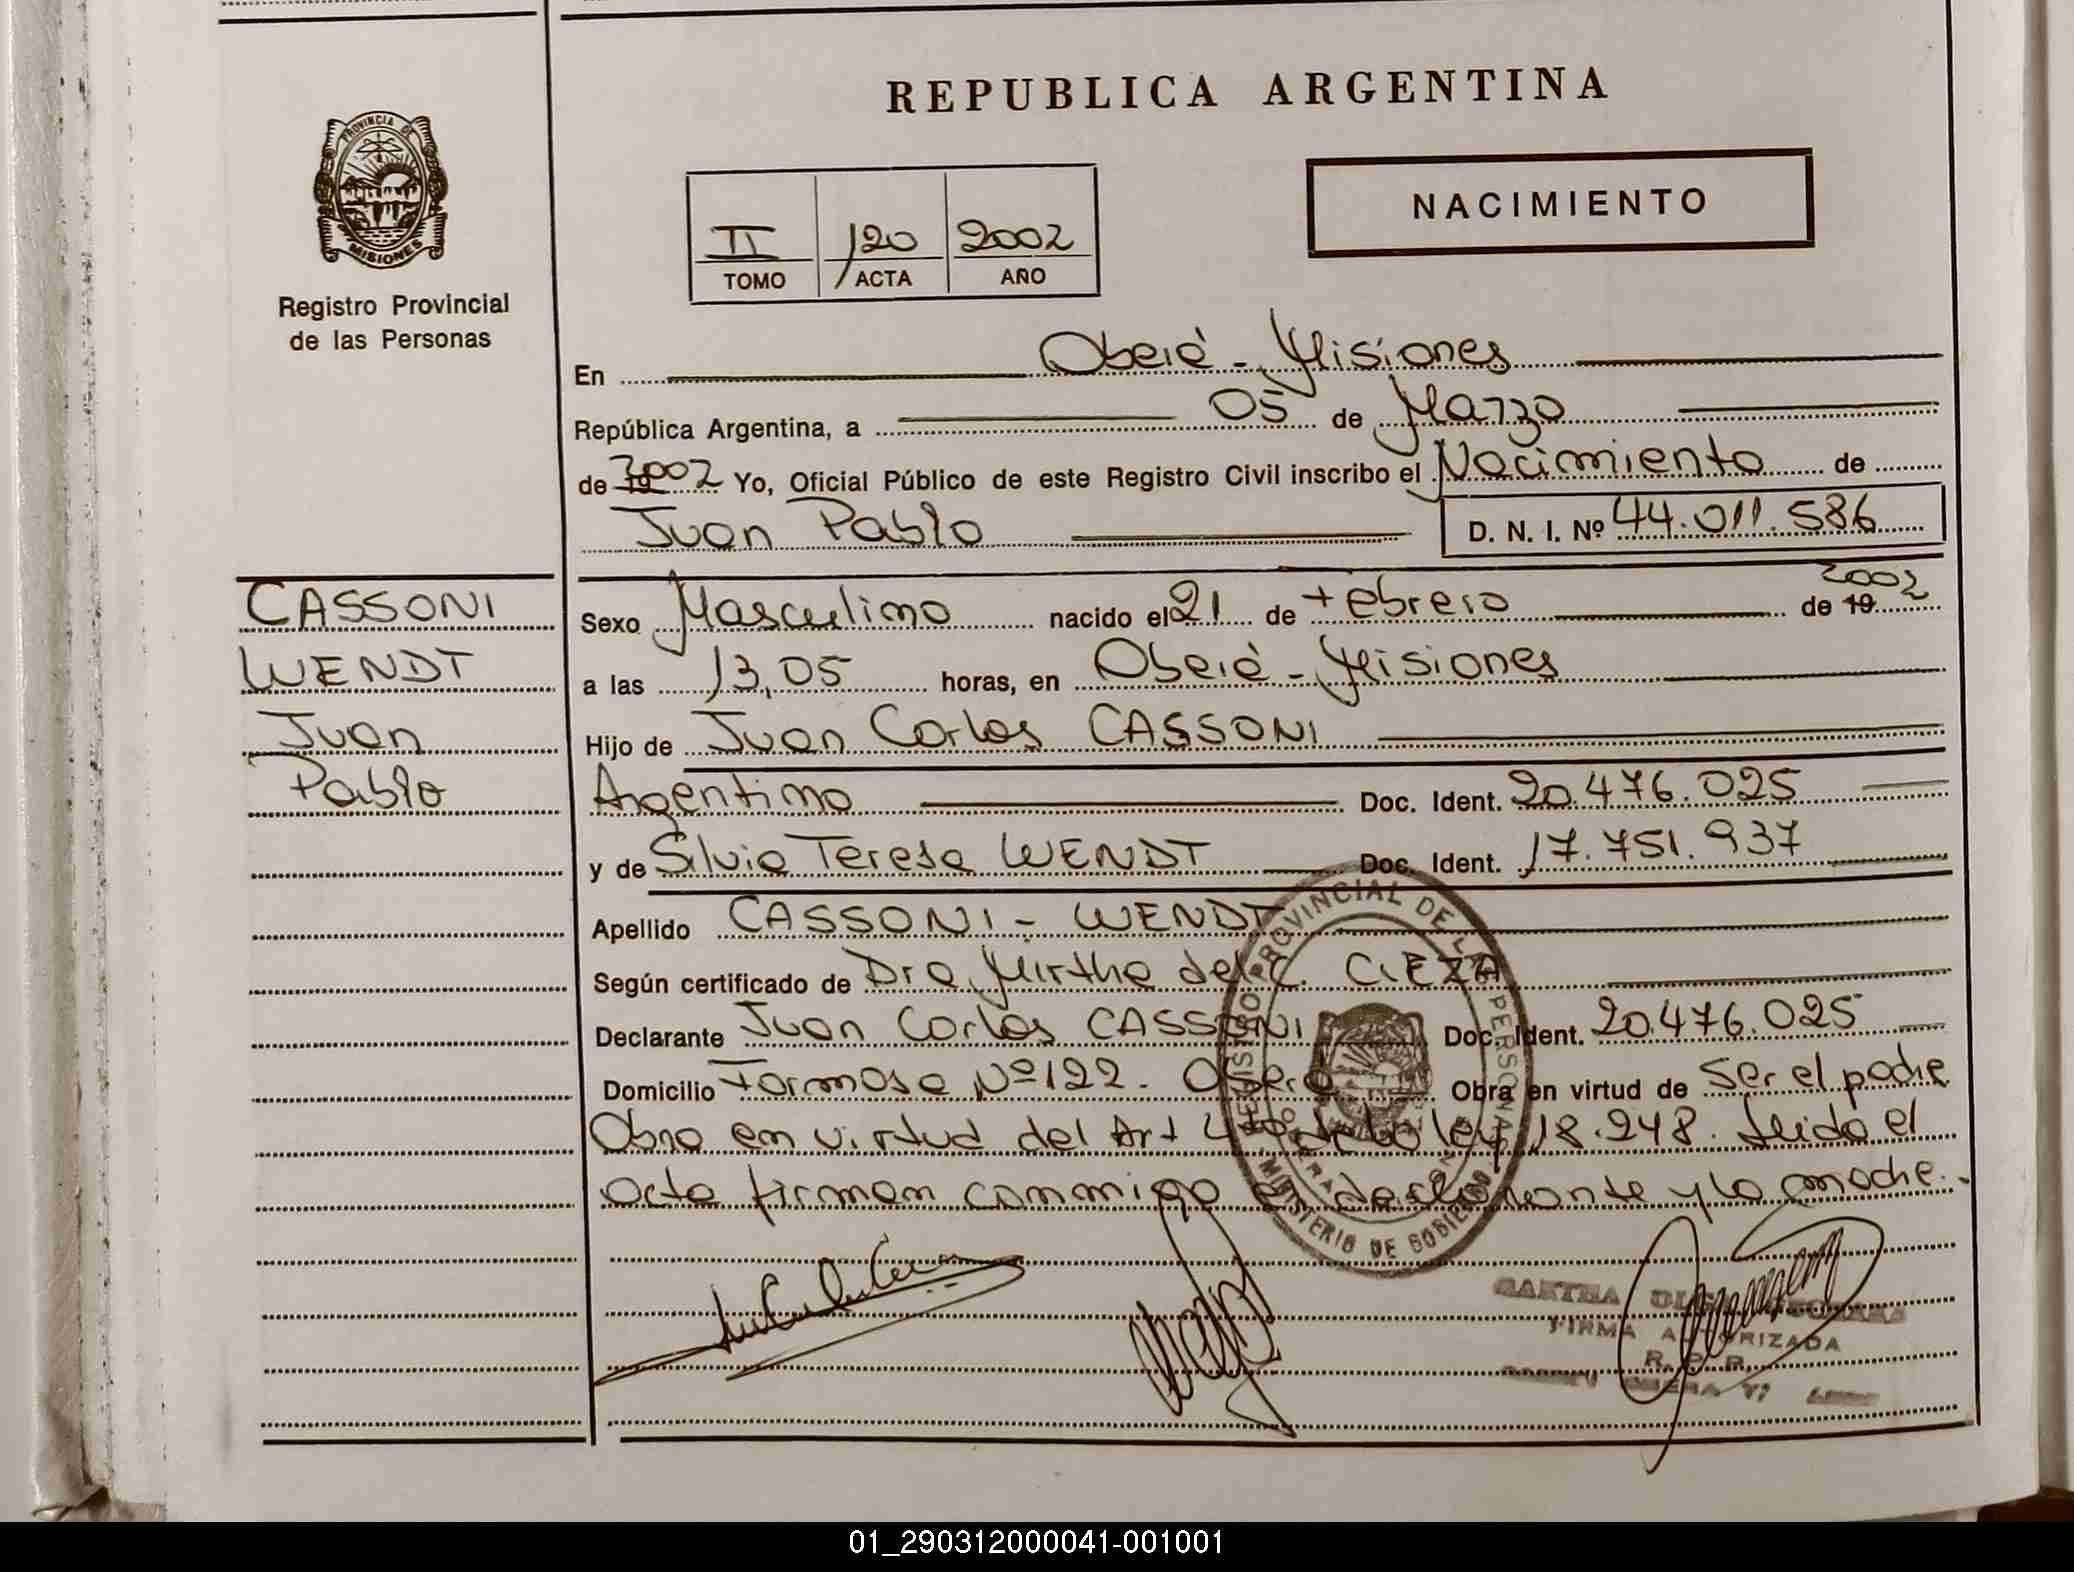 REPUBLICA ARGENTINA
PROVINCIA DE
MISIONES
Registro Provincial
de las Personas
NACIMIENTO
II 120 2002
TOMO ACTA AÑO
En Oberá - Misiones
República Argentina, a 05 de Marzo
de 19 2002 Yo, Oficial Público de este Registro Civil inscribo el Nacimiento de
Juan Pablo D. N. I. Nº 44.011.586
CASSONI
WENDT
Juan
Pablo
Sexo Masculino nacido el 21 de Febrero de 19 2002
a las 13,05 horas, en Oberá - Misiones
Hijo de Juan Carlos CASSONI
Argentino Doc. Ident. 20.476.025
y de Silvia Teresa WENDT Doc. Ident. 17.751.937
Apellido CASSONI - WENDT
Según certificado de Dra. Mirtha del C. CIEZA
Declarante Juan Carlos CASSONI Doc. Ident. 20.476.025
Domicilio Formosa Nº 122. Oberá Obra en virtud de ser el padre
Obra en virtud del Art 4to de la ley 18.248. Leida el
acta firman conmigo el declarante y la madre.-
REGISTRO PROVINCIAL DE LAS PERSONAS
MINISTERIO DE GOBIERNO
FIRMA AUTORIZADA
R. P. P.
01_290312000041-001001